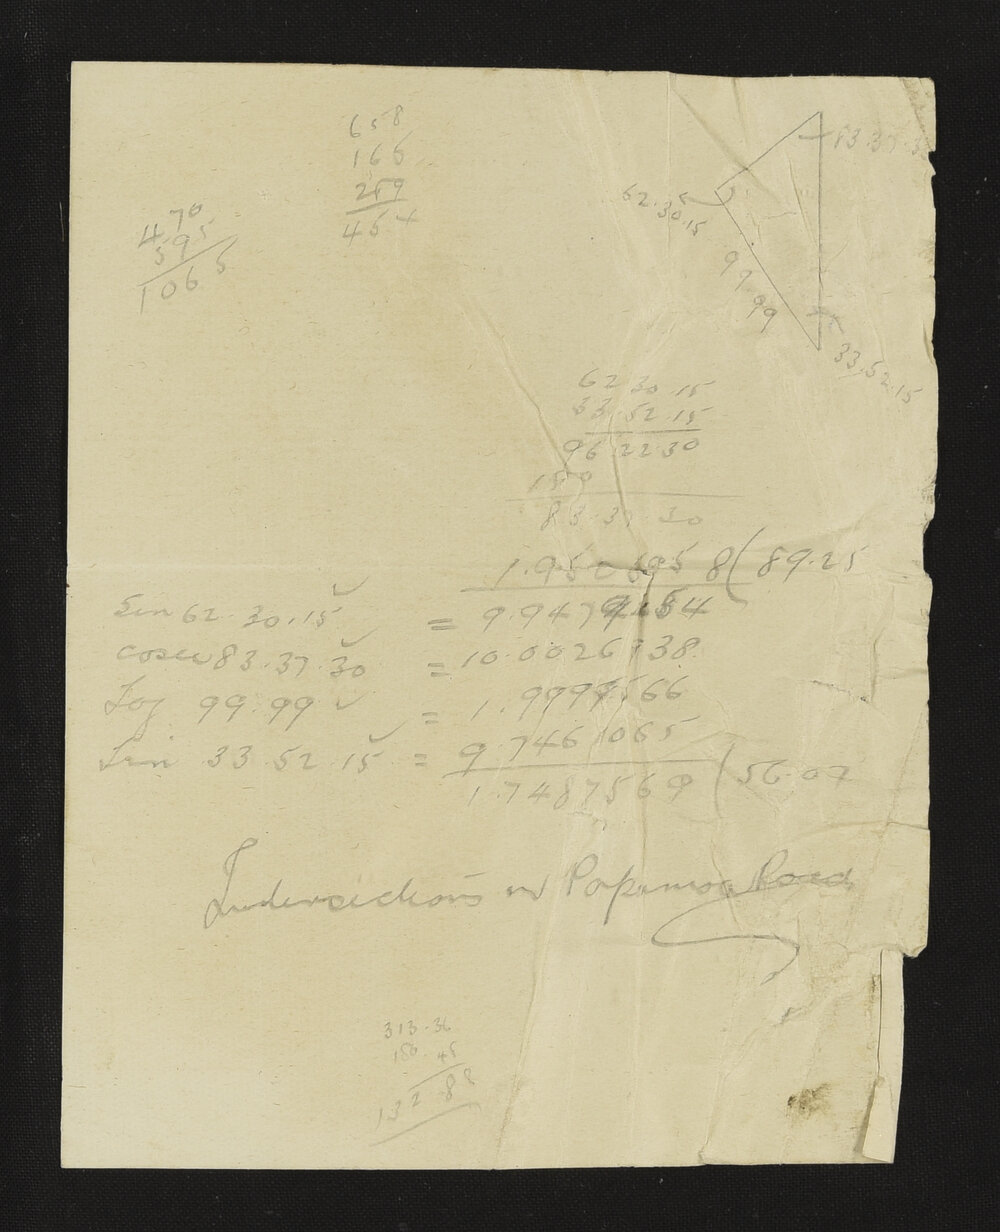 658
166
259
454
470
595
1065
83.37.3
62.30.15
99.99
33.52.15
62 30 15
33.52.15
96 22 30
180
83.37 30
1.9506958 (89.25
Sin 62.30.15 = 9.9479454
cosec 83.37.30 = 10.0026938
Log 99.99 = 1.9999566
Sin 33.52.15 = 9.7461065
1.7487569 (56.07
Intersections in Road
313.36
180.48
132 88